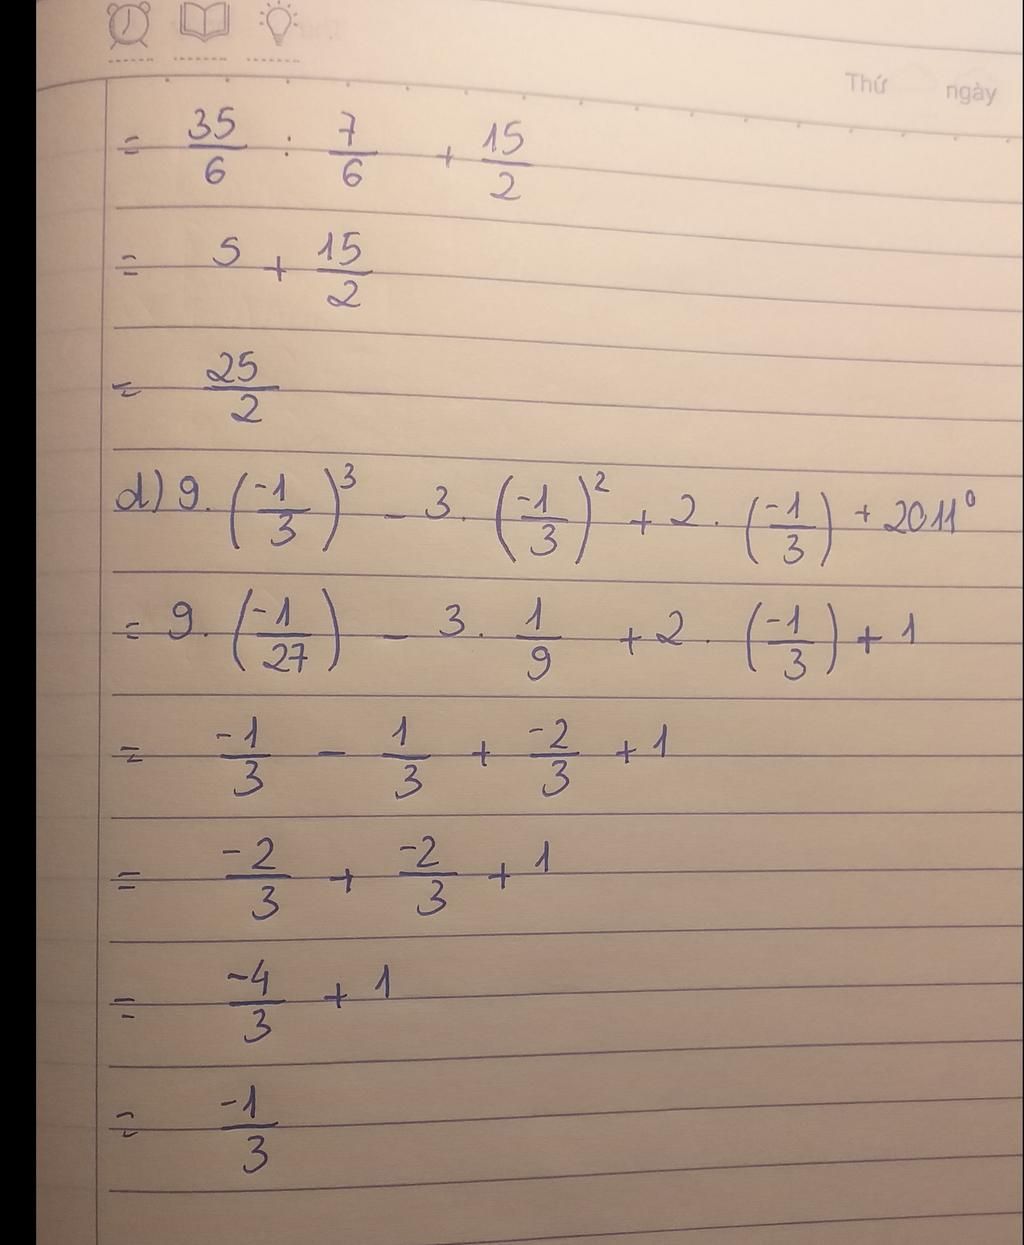 Thứ ngày
= 35/6 : 7/6 + 15/2
= 5 + 15/2
= 25/2
d) 9. (-1/3)³ - 3. (-1/3)² + 2. (-1/3) + 2011⁰
= 9. (-1/27) - 3. 1/9 + 2. (-1/3) + 1
= -1/3 - 1/3 + -2/3 + 1
= -2/3 + -2/3 + 1
= -4/3 + 1
= -1/3